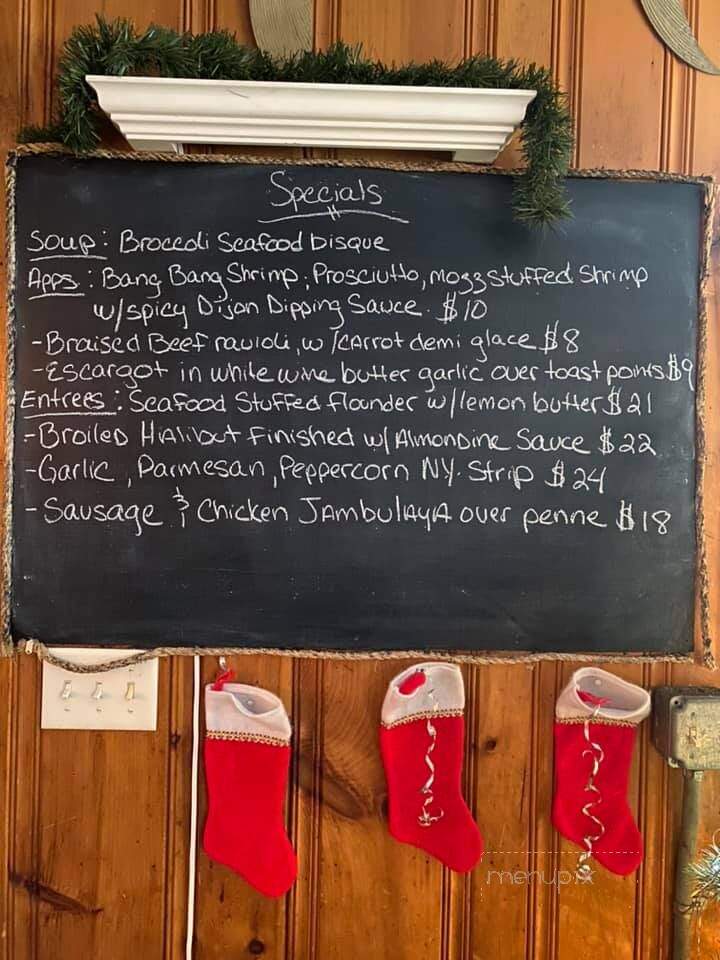 Specials
Soup: Broccoli Seafood bisque
Apps: Bang Bang Shrimp; Prosciutto, mozz stuffed Shrimp
w/spicy Dijon Dipping Sauce. $10
-Braised Beef ravioli, w/carrot demi glace $8
-Escargot in white wine butter garlic over toast points $9
Entrees: Seafood Stuffed flounder w/lemon butter $21
-Broiled Hialibut finished w/ Almondine Sauce $22
-Garlic, Parmesan, Peppercorn NY. Strip $24
-Sausage & Chicken JAmbulAyA over penne $18
menupix